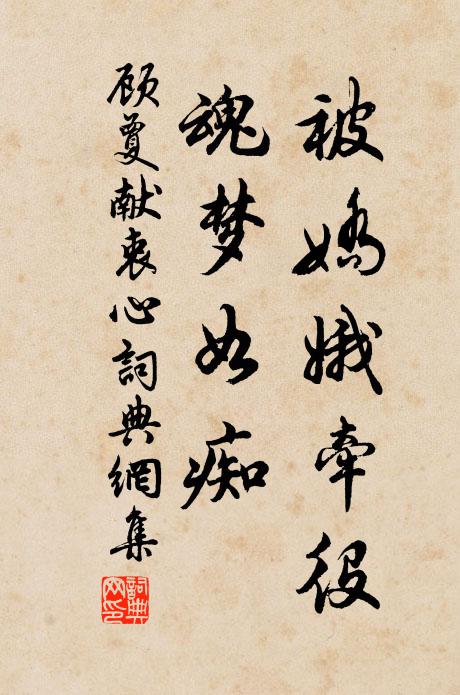 被娇娥牵役
魂梦如痴
顾夐献衷心詞典網集
詞典网印